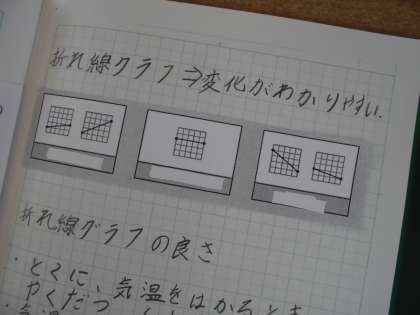 折れ線グラフ⇒変化がわかりやすい.
折れ線グラフの良さ
・とくに、気温をはかるとき
やくだつ